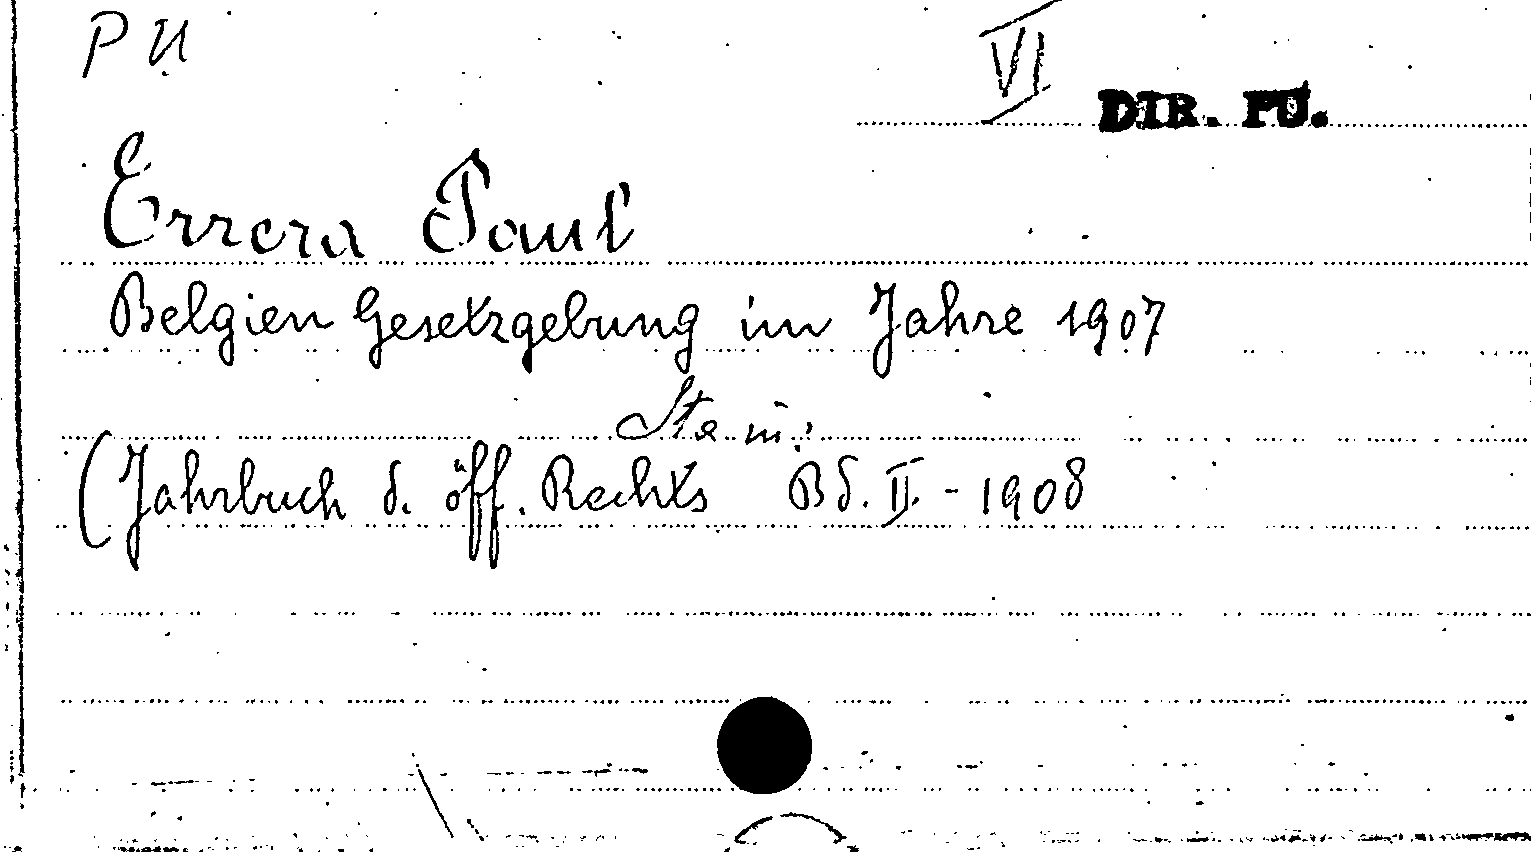 PU
VI DIR. PU.
Errera Paul
Belgien Gesetzgebung im Jahre 1907
(Jahrbuch d. öff. Rechts Bd. II. - 1908